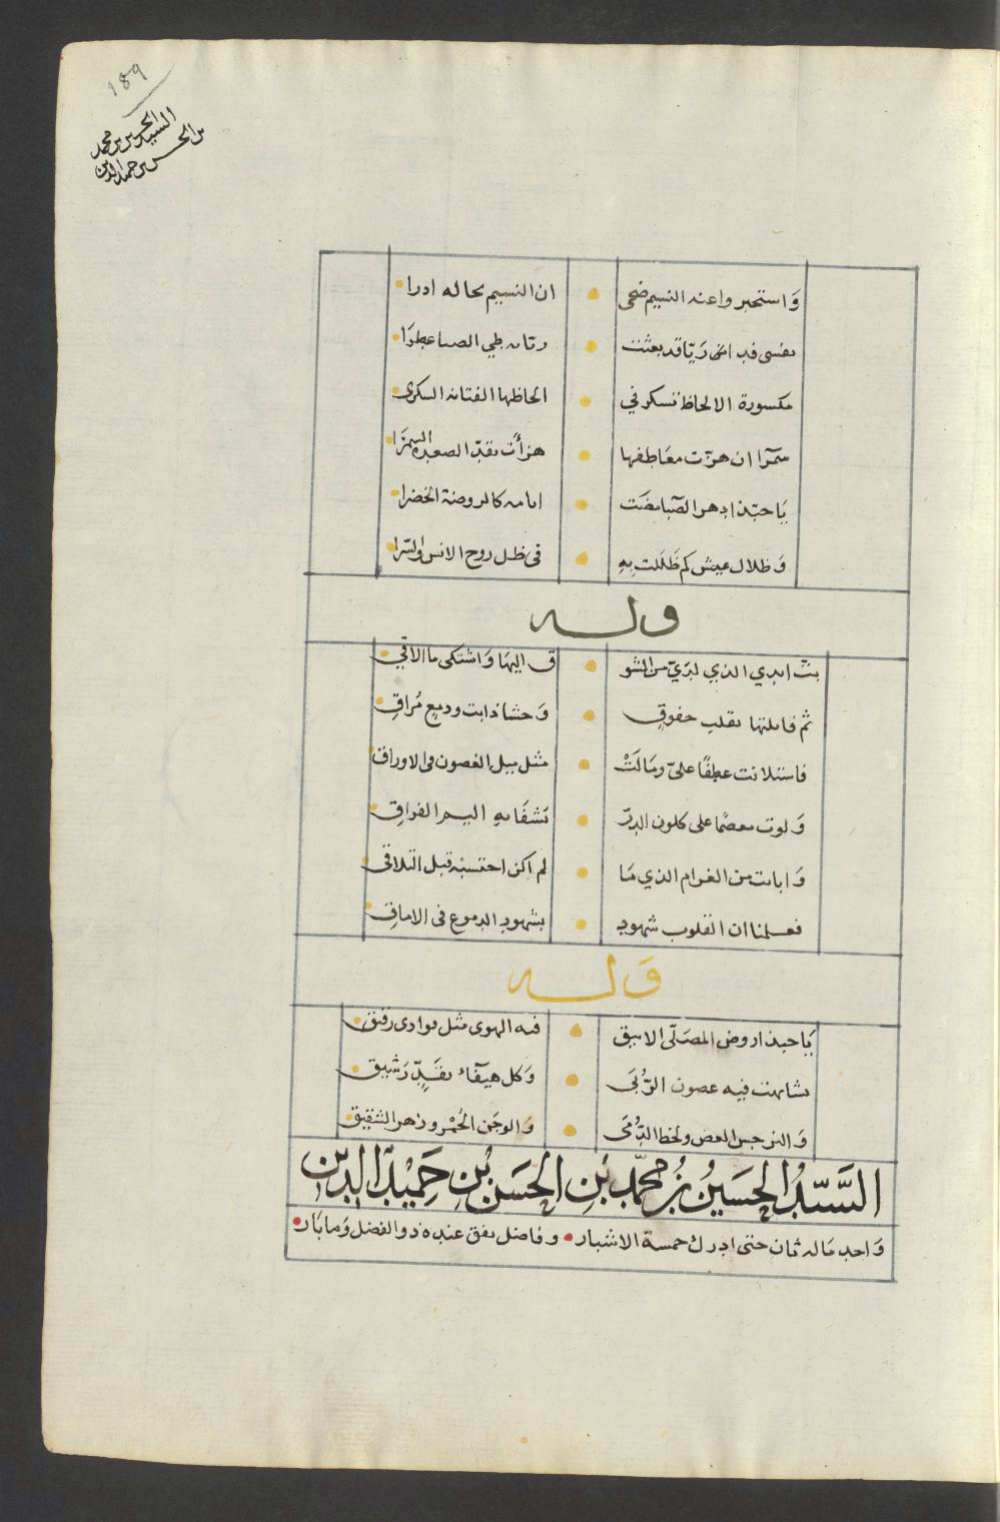 189
السيد الحسين بن محمد
بن الحسن بن حميد الدين
وَاستخبروا عنه النسيم ضحى • ان النسيم بحاله ادرا
نفسى فدا من رَيّا قد بعثت • طي الصبا عطرَا
مكسورة الالحاظ تسكرني • الحاظها الفتانه السكرى
سمرَا ان هزّت معَاطفها • هزأت بقدّ الصعده السمرَا
يَا حبّذا دهر الصّبا مضَت • ايامه كالروضة الخضرا
وَظلال عيش كم ظَلَلت بِهِ • فى ظل روح الانس والسّرا
وله
بثّ ابدي الذي لديّ من الشو • ق اليهَا وَاشتكى ما الاقي
ثم قابلتها بقلب خفوقٍ • وَحشا ذابت ودمع مُراقِ
فاستلانت عطفًا عليّ ومَالَتْ • مثل ميل الغصون فى الاوراق
وَلوت معصمًا على كلون الدرّ • اليم الفراقِ
وَابانت من الغرام الذي مَا • لم اكن احتسبْه قبل التلاقى
فعلمنا ان القلوب شهود • بشهود الدموع فى الاماقِ
وَله
يَا حبذا روض المصَلّى الانيق • فيه الهوى مثل فوادى رقيق
تشابهت فيه غصون الرُّبَى • وَكل هيفَاء بقَدٍّ رَشيق
وَالنرجس الغض ولحظ الدُّمَى • وَالوجَن الحُمْر وزهر الشقيق
السَّيّدُ الحسَينُ بنُ محمّد بْنِ الحسَن بْنِ حَمِيْد الدين
وَاحد مَاله ثان حتى ادرك خمسة الاشبار • وفاضل نفق عنده ذو الفضل وَما بَار •